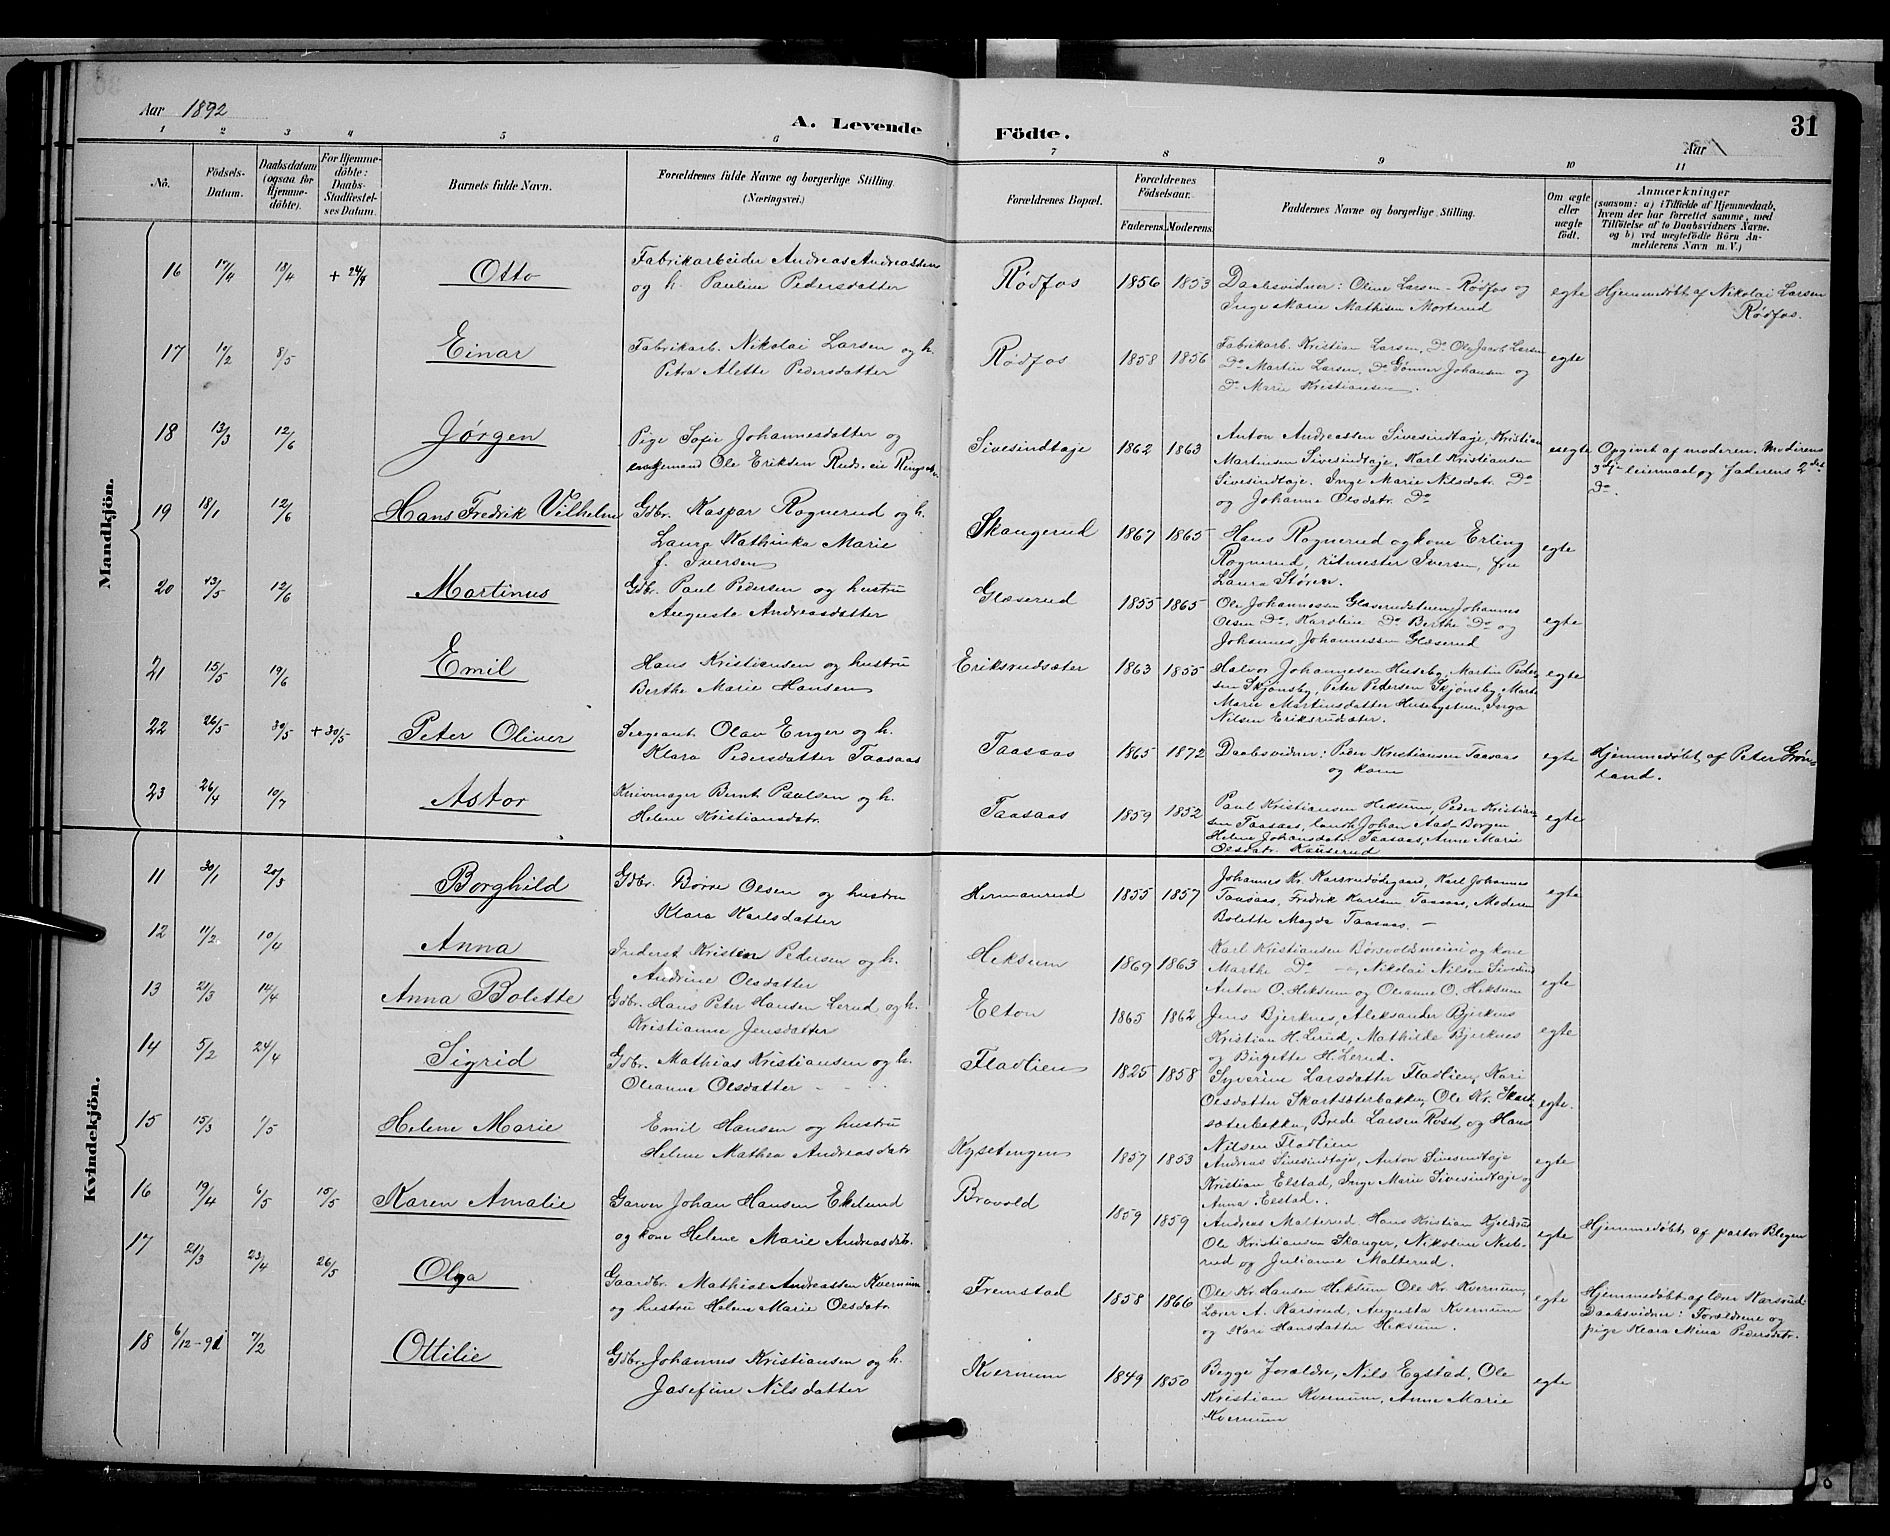 Aar 1892
A. Levende
Födte.
31
Aar
1 2 3 4 5 6 7 8 9 10 11
No.
Födsels-Datum.
Daabsdatum (ogsaa for Hjemme-döbte).
For Hjemme-döbte: Daabs-Stadfæstel-ses Datum.
Barnets fulde Navn.
Forældrenes fulde Navne og borgerlige Stilling. (Næringsvei.)
Forældrenes Bopæl.
Forældrenes Födselsaar.
Faderens. Moderens.
Faddernes Navne og borgerlige Stilling.
Om ægte eller uægte födt.
Anmærkninger
(saasom: a) i Tilfælde af Hjemmedaab,
hvem der har forrettet samme, med
Tilföielse af to Daabsvidners Navne,
og b) ved uægtefödte Börn An-
melderens Navn m. V.)
Mandkjön.
16 17/4 18/4 + 24/4 Otto
Fabrikarbeider Andreas Andreassen
og h. Pauline Pedersdatter
Rødfos 1856 1853
Daabsvidner: Oline Larsen - Rødfos og
Inge Marie Mathisen Morterud
egte
Hjemmedøbt af Nikolai Larsen
Rødfos.
17 12/2 8/5 Einar
Fabrikarb. Nikolai Larsen og h.
Petra Alette Pedersdatter
Rødfos 1858 1856
Fabrikarb. Kristian Larsen, Do Ole Jacob Larsen
Do Martin Larsen, Do Gunner Johansen og
Do Marie Kristiansen.
egte
18 13/3 12/6 Jørgen
Pige Sofie Johannesdatter og
enkemand Ole Eriksen Ruds. eie
Sivesindtaje 1862 1863
Anton Andreassen Sivesindtaje, Kristian
Martinsen Sivesindtaje, Karl Kristiansen
Sivesindtaje. Inge Marie Nilsdatr. Do
og Johanne Olsdatr. Do
uegte
Opgivet af moderen. Moderens
3die leiermaal og faderens 2det
Do.
19 18/1 12/6 Hans Fredrik Vilhelm
Gdbr. Kaspar Rognerud og h.
Laura Kathinka Marie
f. Iversen
Skangerud 1867 1865
Hans Rognerud og kone Erling
Rognerud, ritmester Iversen, fru
Laura Støren.
egte
20 13/5 12/6 Martinus
Gdb. Paul Pedersen og hustru
Augusta Andreasdatter
Glæserud 1855 1865
Ole Johannessen Glæserudstuen, Johannes
Olsen Do, Karoline Do Berthe Do og
Johannes Johannessen Glæserud
egte
21 15/5 19/6 Emil
Hans Kristiansen og hustru
Berthe Marie Hansen
Eriksrudsæter 1863 1855
Halvor Johannesen Huseby, Martin Peder-
sen Skjønsby, Peter Pedersen Skjønsby, Marte
Marie Martinsdatter Husebystuen, Inga
Nilsen Eriksrudsæter.
egte
22 26/5 30/5 + 30/5 Peter Oliver
Sergeant Olav Enger og h.
Klara Pedersdatter Taasaas
Taasaas 1865 1872
Daabsvidner: Peder Kristiansen Taasaas
og kone
egte
Hjemmedøbt af Peter Grøn-
land.
23 26/4 10/7 Astor
Knivmager Bernt Paulsen og h.
Helene Kristiansdatr.
Taasaas 1859 1852
Paul Kristiansen Heksum, Peder Kristian-
sen Taasaas, Johan Borgen
Helene Johansdatr. Taasaas, Anne Marie
Olsdatr. Kauserud
egte
Kvindekjön.
11 30/1 20/3 Borghild
Gdbr. Børre Olsen og hustru
Klara Karlsdatter
Hermanrud 1855 1857
Johannes Kr. Karsrudødegaard, Karl Johannes
Taasaas, Fredrik Karlsen Taasaas, Moderen
Bolette Magda Taasaas. -
egte
12 11/2 10/4 Anna
Inderst Kristen Pedersen og h.
Andrine Olsdatter
Heksum 1869 1863
Karl Kristiansen Børsvoldsmeieri og kone
Marthe Do -, Nikolai Nilsen Sivesind
Anton O. Heksum og Oleanne O. Heksum
egte
13 21/3 14/4 Anna Bolette
Gdbr. Hans Peter Hansen Lerud og h.
Kristianne Jensdatter
Elton 1865 1862
Jens Bjerknes, Aleksander Bjerknes
Kristian H. Lerud, Mathilde Bjerknes
og Birgette H. Lerud.
egte
14 5/2 24/4 Sigrid
Gdbr. Mathias Kristiansen og h.
Oleanne Olsdatter
Fladlien 1825 1858
Syverine Larsdatter Fladlien, Kari
Olsdatter Skartsæterbakken, Ole Kr. Skart-
sæterbakken, Brede Larsen Roset, og Hans
Nilsen Fladlien
egte.
15 15/3 1/5 Helene Marie
Emil Hansen og hustru
Helene Mathea Andreasdatr
Kysetengen 1857 1853
Andreas Sivesindtaje, Anton Sivesindtaje
Kristian Elstad, Inge Marie Sivesindtaje og
Anna Elstad.
egte
16 19/4 6/5 15/5 Karen Amalie
Garver Johan Hansen Ekelund
og kone Helene Marie Andreasdatr.
Brovold 1859 1859
Andreas Malterud, Hans Kristian Kjelsrud
Ole Kristiansen Skanger, Nikoline Neste-
rud og Julianne Malterud.
egte
Hjemmedøbt af pastor Blegen
17 21/3 23/4 26/5 Olga
Gaardbr. Mathias Andreassen Kvernum
og hustru Helene Marie Olsdatr.
Fremstad 1858 1866
Ole Kr. Hansen Heksum, Ole Kr. Kvernum,
Lærer A. Karsrud, Augusta Kvernum
og Kari Hansdatter Heksum.
egte
Hjemmedøbt af lærer Karsrud.
Daabsvidner: Forældrene og
pige Klara Mina Pedersdatr.
18 6/12-91 7/2 Ottilie
Gdbr. Johannes Kristiansen og h.
Josefine Nilsdatter
Kvernum 1849 1850
Begge forældre, Nils Egstad, Ole
Kristian Kvernum, Anne Marie
Kvernum
egte